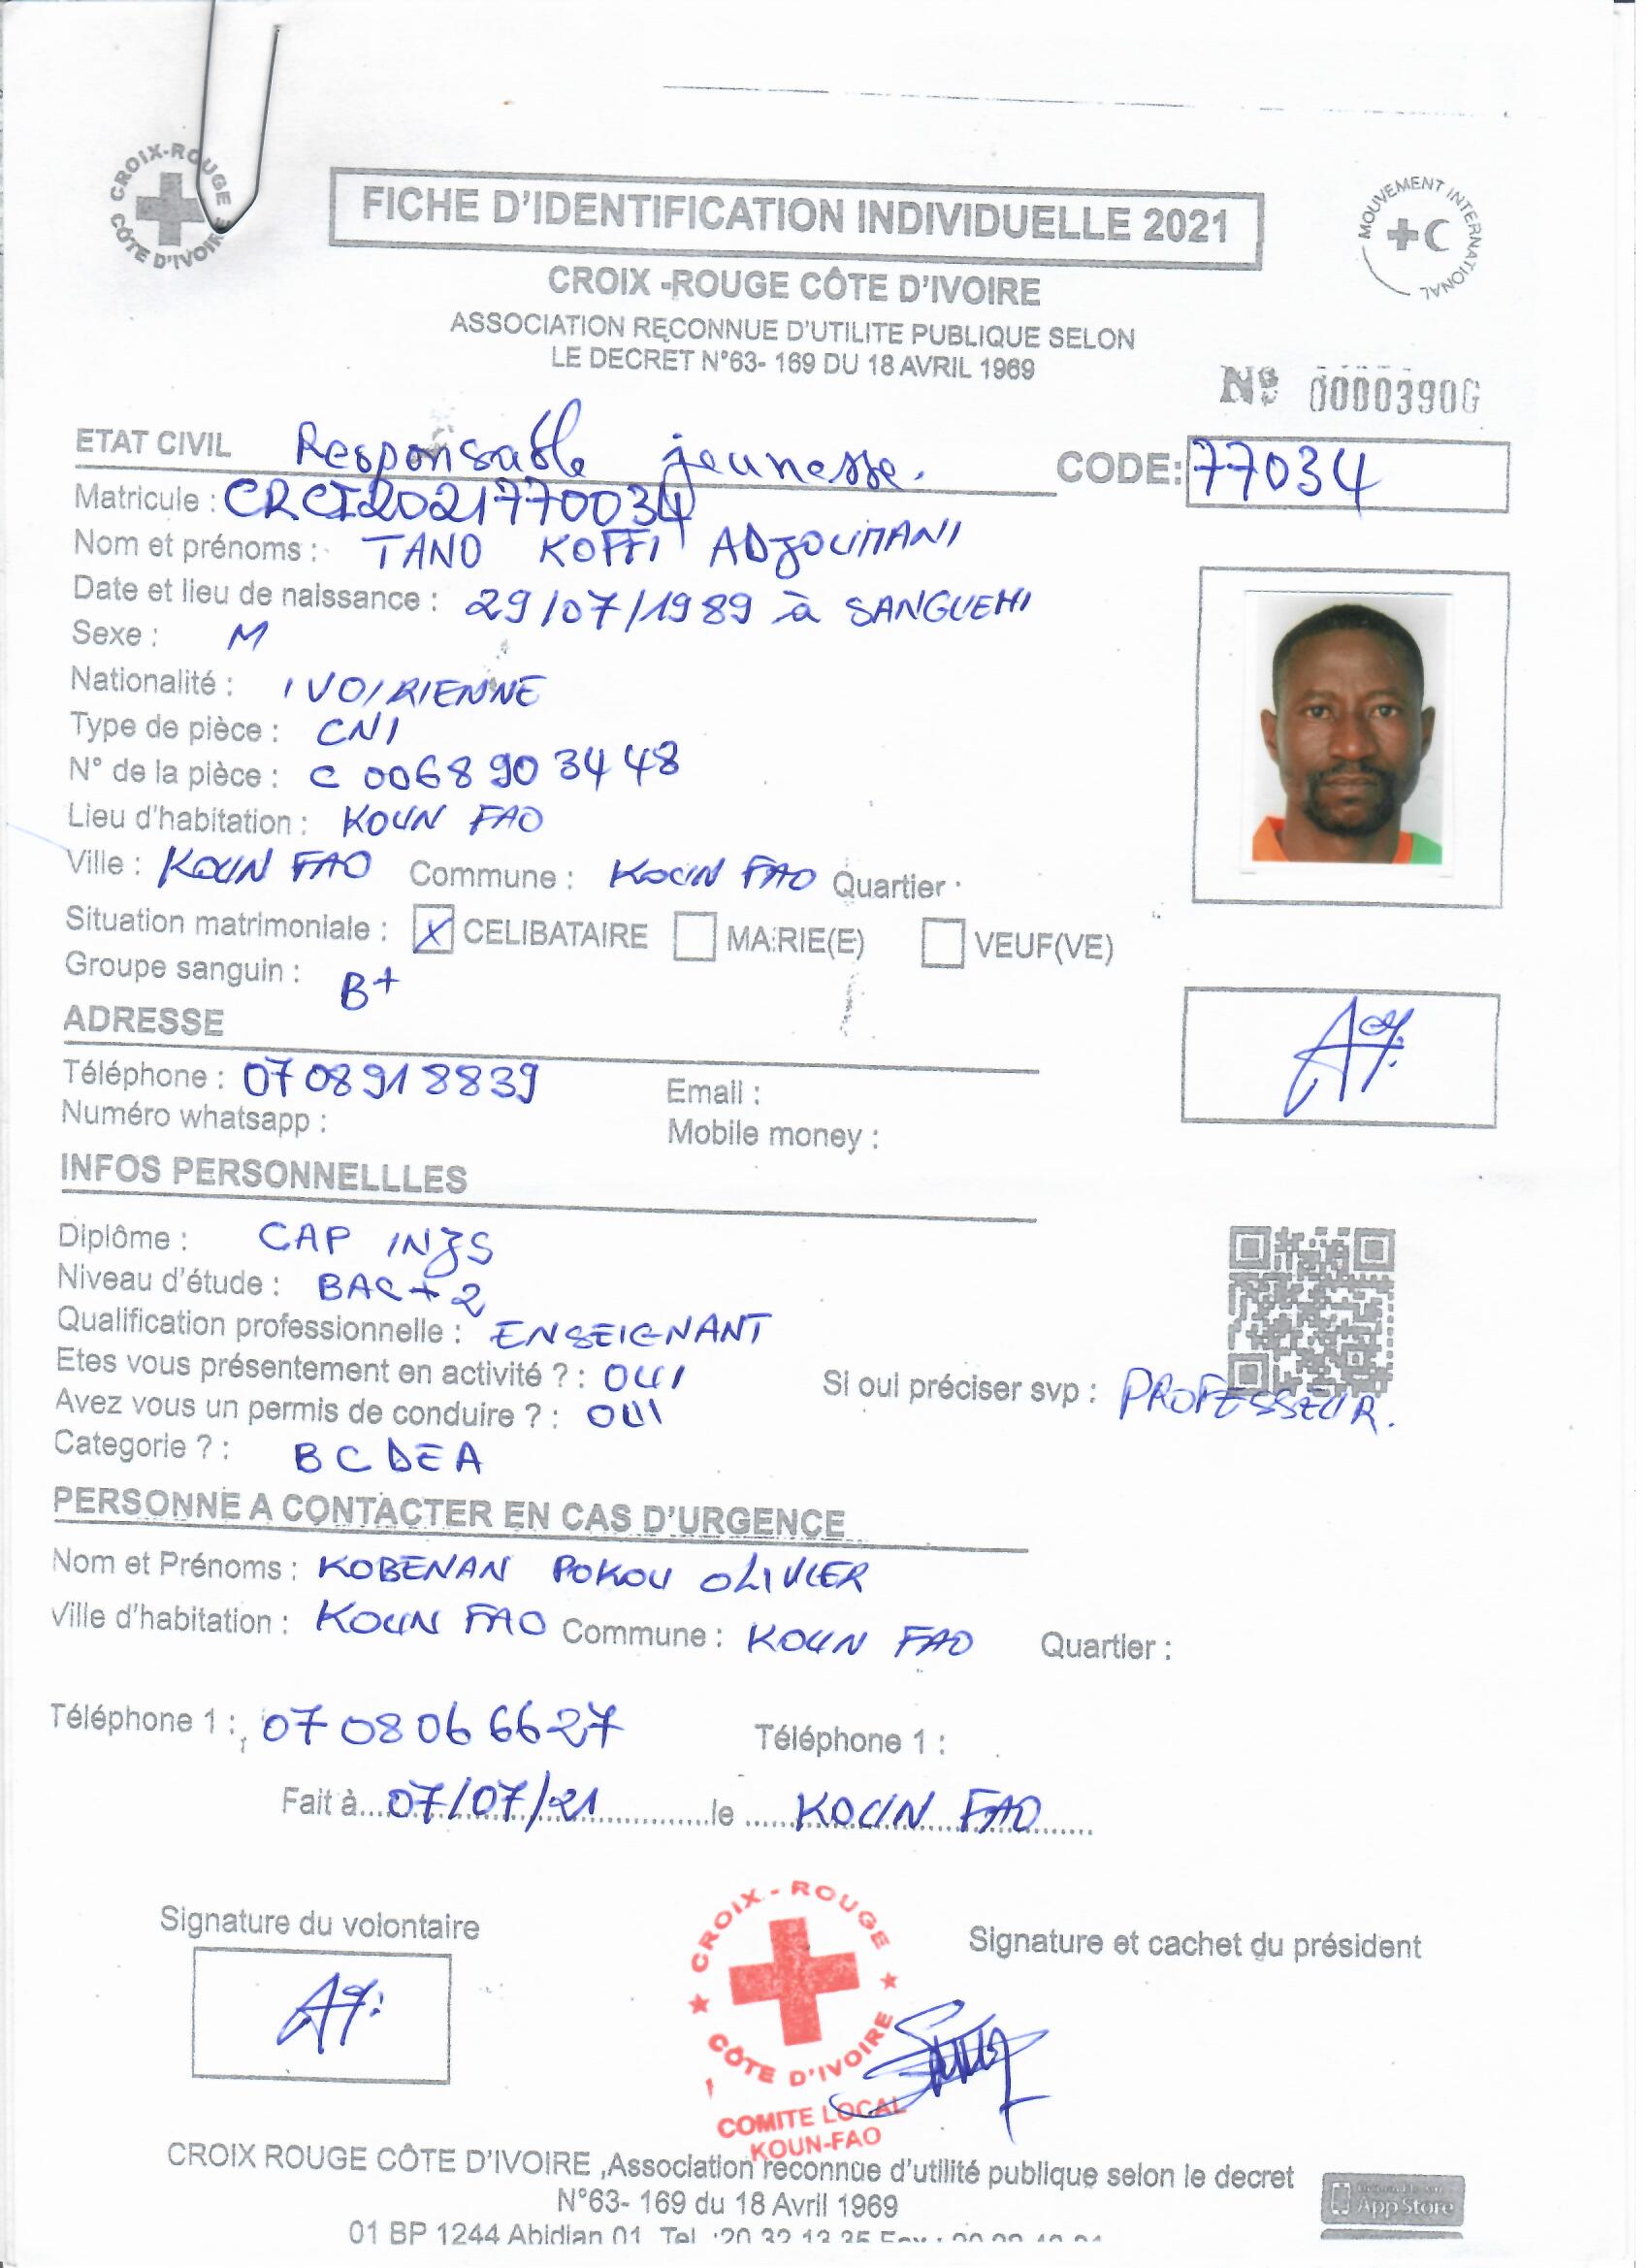 CROIX-ROUGE
CÔTE D'IVOIRE
FICHE D'IDENTIFICATION INDIVIDUELLE 2021
MOUVEMENT INTERNATIONAL
CROIX -ROUGE CÔTE D'IVOIRE
ASSOCIATION RECONNUE D'UTILITE PUBLIQUE SELON
LE DECRET N°63- 169 DU 18 AVRIL 1969
Nº 0000390G
ETAT CIVIL Responsable jeunesse. CODE: 77034
Matricule : CRCI2021770034
Nom et prénoms : TANO KOFFI ADJOUMANI
Date et lieu de naissance : 29/07/1989 à SANGUEHI
Sexe : M
Nationalité : IVOIRIENNE
Type de pièce : CNI
N° de la pièce : C 0068 90 34 48
Lieu d'habitation : KOUN FAO
Ville : KOUN FAO Commune : KOUN FAO Quartier :
Situation matrimoniale : X CELIBATAIRE MARIE(E) VEUF(VE)
Groupe sanguin : B+
ADRESSE
Téléphone : 0708918839 Email :
Numéro whatsapp : Mobile money :
INFOS PERSONNELLLES
Diplôme : CAP INJS
Niveau d'étude : BAC+2
Qualification professionnelle : ENSEIGNANT
Etes vous présentement en activité ? : OUI Si oui préciser svp : PROFESSEUR.
Avez vous un permis de conduire ? : OUI
Categorie ? : B C D E A
PERSONNE A CONTACTER EN CAS D'URGENCE
Nom et Prénoms : KOBENAN POKOU OLIVIER
Ville d'habitation : KOUN FAO Commune : KOUN FAO Quartier :
Téléphone 1 : 07 08 06 66 27 Téléphone 1 :
Fait à...07/07/21...le ...KOUN FAO...
Signature du volontaire
Signature et cachet du président
CROIX-ROUGE
CÔTE D'IVOIRE
COMITE LOCAL
KOUN-FAO
CROIX ROUGE CÔTE D'IVOIRE ,Association reconnue d'utilité publique selon le decret
N°63- 169 du 18 Avril 1969
App Store
01 BP 1244 Abidjan 01 Tel :20 32 13 35 Fax :